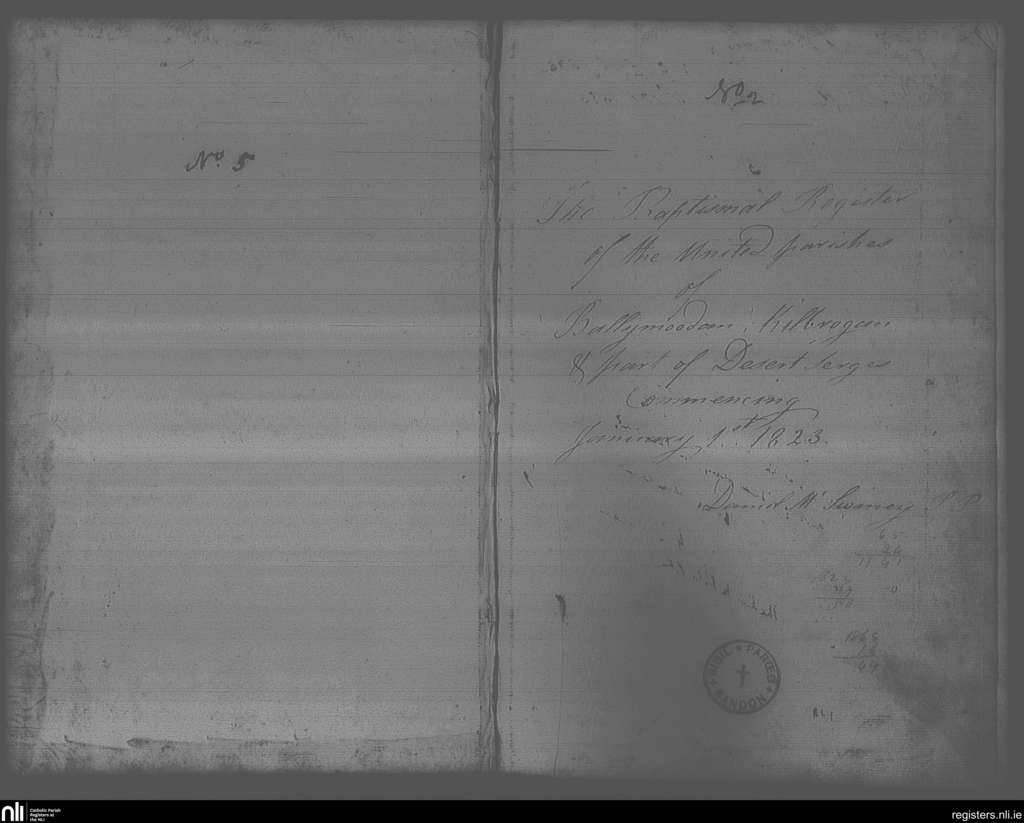 No. 5
No 2
The Baptismal Register
of the United parishes
of
Ballymoodan, Kilbrogan
& part of Desert Serges
Commencing
January 1st 1823.
Daniel Mc Swiney P.P.
PAROIS
BANDON
nli
Catholic Parish
Registers at
the NLI
registers.nli.ie